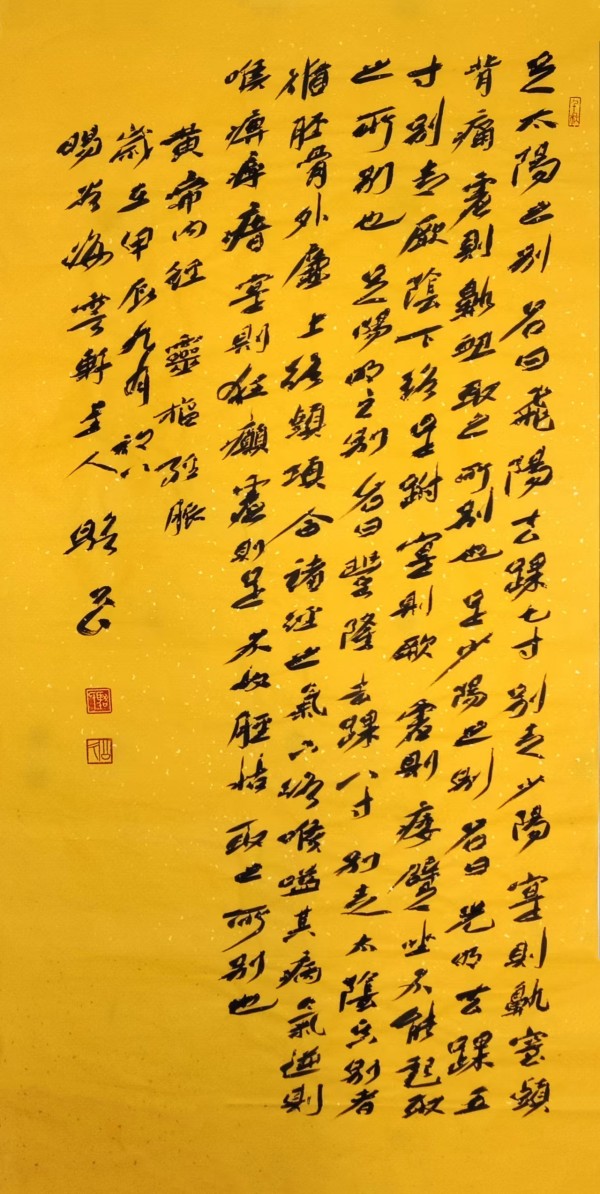 足太陽之別名曰飛陽去踝七寸別走少陽實則鼽窒頭
背痛虛則鼽衄取之所別也足少陽之別名曰光明去踝五
寸別走厥陰下絡足跗實則厥虛則痿躄坐不能起取
之所別也足陽明之別名曰豐隆去踝八寸別走太陰其別者
循脛骨外廉上絡頭項合諸經之氣下絡喉嗌其病氣逆則
喉痹瘁瘖實則狂癲虛則足不收脛枯取之所別也
黃帝內經靈樞經脈
歲在甲辰九月初八
海雲軒主人